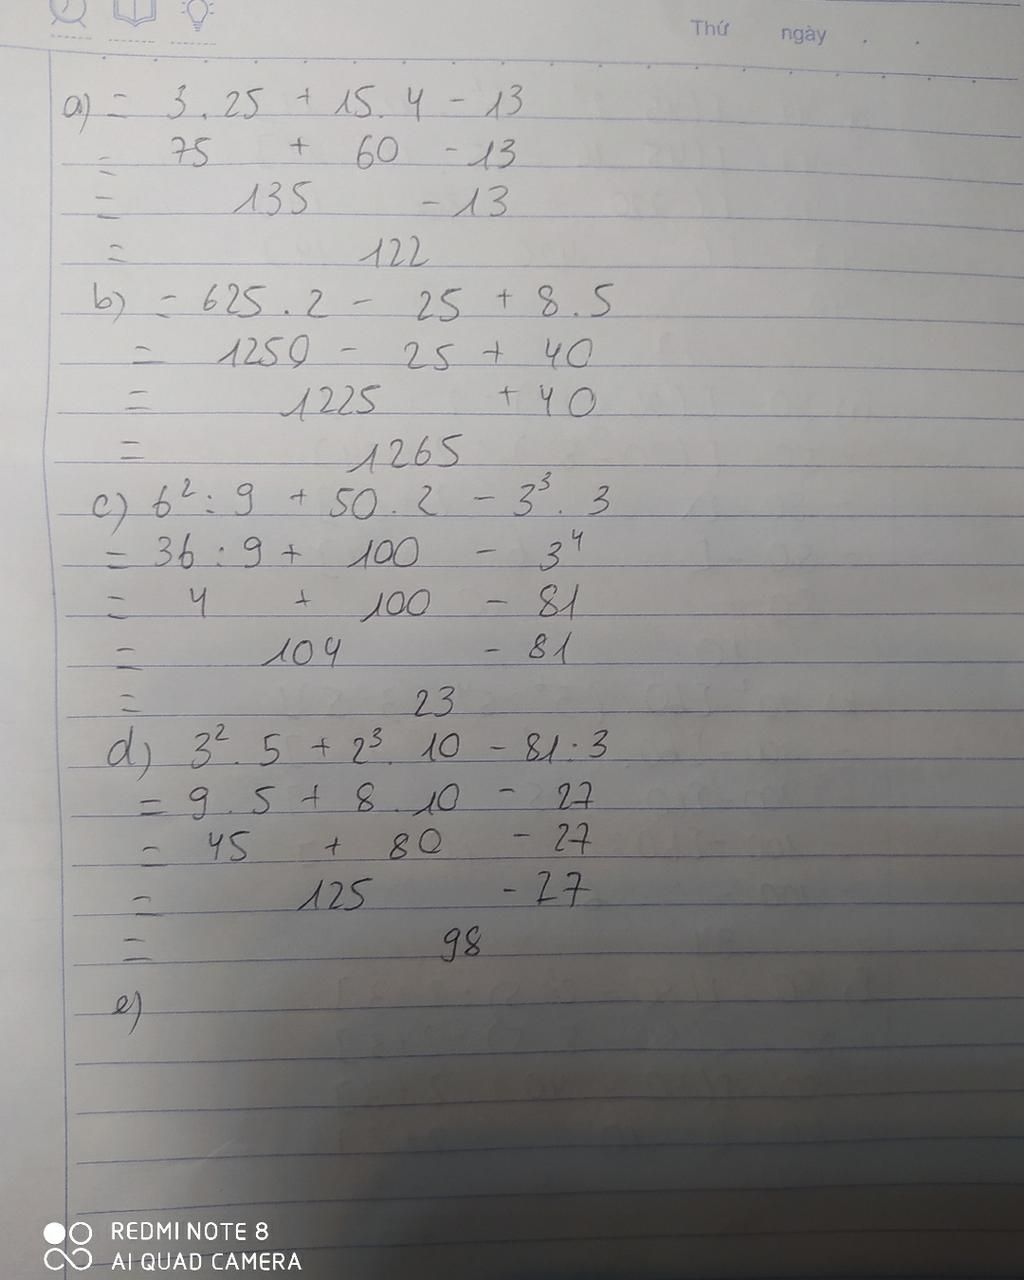 Thứ ngày . .
a) = 3.25 + 15.4 - 13
= 75 + 60 - 13
= 135 - 13
= 122
b) = 625.2 - 25 + 8.5
= 1250 - 25 + 40
= 1225 + 40
= 1265
c) 6² : 9 + 50.2 - 3³.3
= 36 : 9 + 100 - 3⁴
= 4 + 100 - 81
= 104 - 81
= 23
d) 3².5 + 2³.10 - 81:3
= 9.5 + 8.10 - 27
= 45 + 80 - 27
= 125 - 27
= 98
e)
REDMI NOTE 8
AI QUAD CAMERA